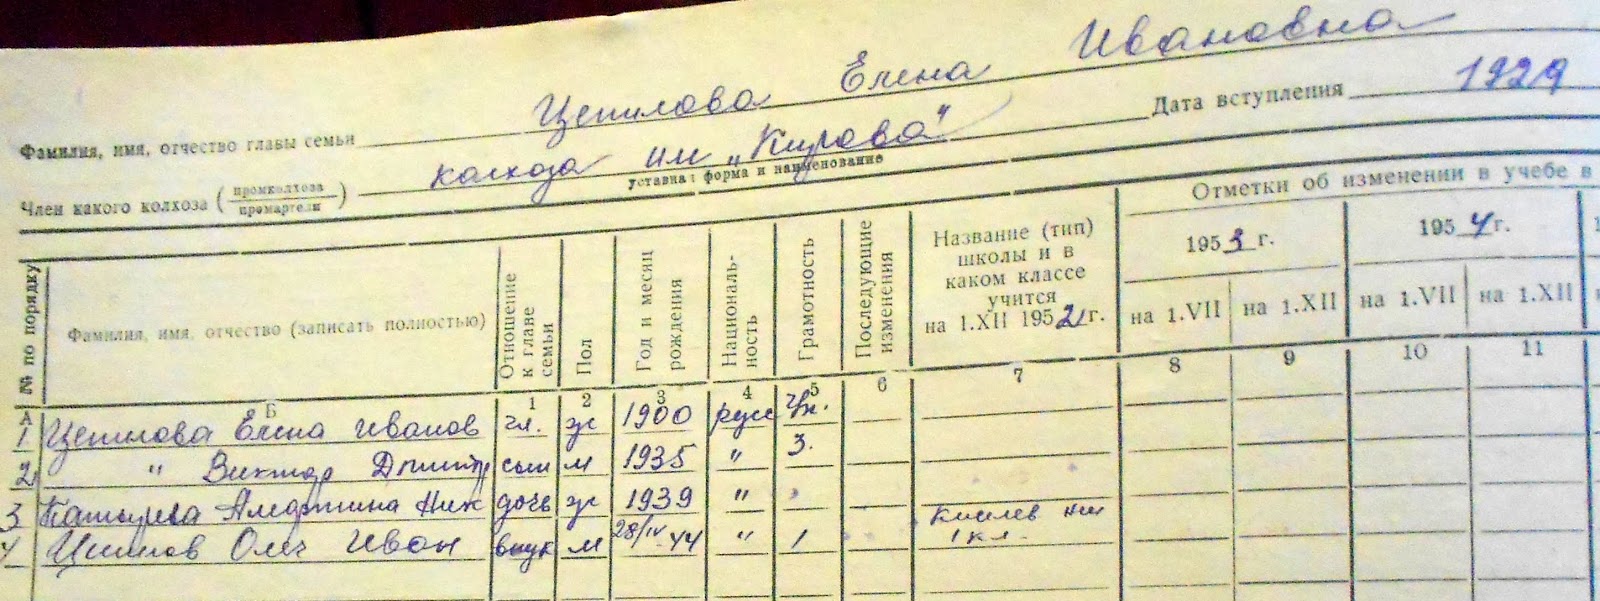 Фамилия, имя, отчество главы семьи Цепилова Елена Ивановна
Член какого колхоза (промколхоза промартели) колхоза им „Кирова" Дата вступления 1929
уставная форма и наименование
№ по порядку
Фамилия, имя, отчество (записать полностью)
Отношение к главе семьи
Пол
Год и месяц рождения
Националь-ность
Грамотность
Последующие изменения
Название (тип) школы и в каком классе учится на 1.XII 1952 г.
Отметки об изменении в учебе в
1953 г. 1954 г.
на 1.VII на 1.XII на 1.VII на 1.XII
А Б 1 2 3 4 5 6 7 8 9 10 11
1 Цепилова Елена Иванов гл. ж 1900 русс
2 " Виктор Дмитр сын м 1935 " 3.
3 Алевтина Ник дочь ж 1939 "
4 Цепилов Олег Иван внук м 28/IV-44 " 1 1 кл.